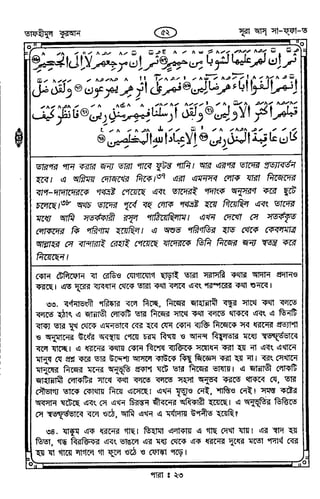 তাফহীমুল কুরআন
৫২
সূরা আস্ সা-ফ্ফা-ত
ثُمَّ إِنَّ لَهُمْ عَلَيْهَا لَشَوْبًا مِّنْ حَمِيمٍ ۝ ثُمَّ إِنَّ مَرْجِعَهُمْ لَا۟إِلَى الْجَحِيمِ ۝
إِنَّهُمْ أَلْفَوْا آبَاءَهُمْ ضَالِّينَ ۝ فَهُمْ عَلَىٰ آثَارِهِمْ يُهْرَعُونَ ۝ وَلَقَدْ ضَلَّ
قَبْلَهُمْ أَكْثَرُ الْأَوَّلِينَ ۝ وَلَقَدْ أَرْسَلْنَا فِيهِمْ مُّنذِرِينَ ۝ فَانظُرْ كَيْفَ
كَانَ عَاقِبَةُ الْمُنذَرِينَ ۝ إِلَّا عِبَادَ اللَّهِ الْمُخْلَصِينَ ۝
তারপর পান করার জন্য তারা পাবে ফুটন্ত পানি। আর এরপর তাদের প্রত্যাবর্তন
হবে। এ অগ্নিময় দোজখের দিকে।৩৫ এরা এমনসব লোক যারা নিজেদের
বাপ-দাদাদেরকে পথভ্রষ্ট পেয়েছে এবং তাদেরই পদাংক অনুসরণ করে ছুটে
চলেছে।৩৬ অথচ তাদের পূর্বে বহু লোক পথভ্রষ্ট হয়ে গিয়েছিল এবং তাদের
মধ্যে আমি সতর্ককারী রসূল পাঠিয়েছিলাম। এখন দেখো সে সতর্ককৃত
লোকদের কি পরিণাম হয়েছিল। এ অশুভ পরিণতির হাত থেকে কেবলমাত্র
আল্লাহর সে বান্দারাই রেহাই পেয়েছে যাদেরকে তিনি নিজের জন্য স্বতন্ত্র করে
নিয়েছেন।
কোন টেলিফোন বা রেডিও যোগাযোগ ছাড়াই তারা সরাসরি কথার আদান প্রদানও
করছে। এত দূরের ব্যবধান থেকে তারা কথা বলবে এবং পরস্পরের কথা শুনবে।
৩৩. বর্ণনাভংগী পরিষ্কার বলে দিচ্ছে, নিজের জাহান্নামী বন্ধুর সাথে কথা বলতে
বলতে হঠাৎ এ জান্নাতী লোকটি তার নিজের সাথে কথা বলতে থাকবে এবং এ তিনটি
বাক্য তার মুখ থেকে এমনভাবে বের হবে যেন কোন ব্যক্তি নিজেকে সব ধরনের প্রত্যাশা
ও অনুমানের উর্ধের অবস্থায় পেয়ে চরম বিস্ময় ও আনন্দ বিহ্বলতার মধ্যে স্বতস্ফূর্তভাবে
বলে যাচ্ছে। এ ধরনের কথায় কোন বিশেষ ব্যক্তিকে সম্বোধন করা হয় না এবং এখানে
মানুষ যে প্রশ্ন করে তার উদ্দেশ্য আসলে কাউকে কিছু জিজ্ঞেস করা হয় না। বরং সেখানে
মানুষের নিজের মনের অনুভূতি প্রকাশ ঘটে তার নিজের ভাষায়। এ জান্নাতী লোকটি
জাহান্নামী লোকটির সাথে কথা বলতে বলতে সহসা অনুভব করতে থাকবে যে, তার
সৌভাগ্য তাকে কোথায় নিয়ে এসেছে। এখন মৃত্যুও নেই, শাস্তিও নেই। সমস্ত কষ্টের
অবসান ঘটেছে এবং সে এখন চিরন্তন জীবনের অধিকারী হয়েছে। এ অনুভূতির ভিত্তিতে
সে স্বতস্ফূর্তভাবে বলে ওঠে, আমি এখন এ মর্যাদায় উপনীত হয়েছি?
৩৪. যাক্কুম এক ধরনের গাছ। তিহামা এলাকায় এ গাছ দেখা যায়। এর স্বাদ হয়
তিতা, গন্ধ বিরক্তিকর এবং ভাঙলে এর মধ্য থেকে এক ধরনের দুধের মতো পদার্থ বের
হয় যা গায়ে লাগলে গা ফুলে ওঠে ও ফোস্কা পড়ে।
পারা : ২৩